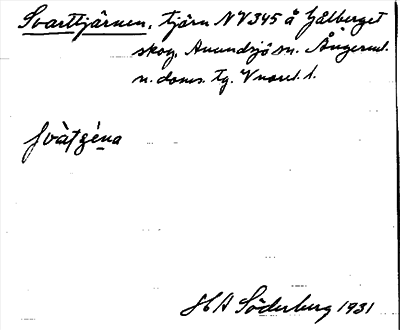 Svarttjärnen, tjärn NV 345 å Gålberget
skog, Anundsjö sn. Ångerml.
n. doms. tg. V norrl. l.
svàtɟè́na
H A Söderberg 1931